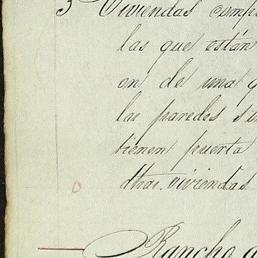 3 Viviendas comp
las que están
on de una q
las paredes su
tienen puerta
dhas. viviendas
Rancho d